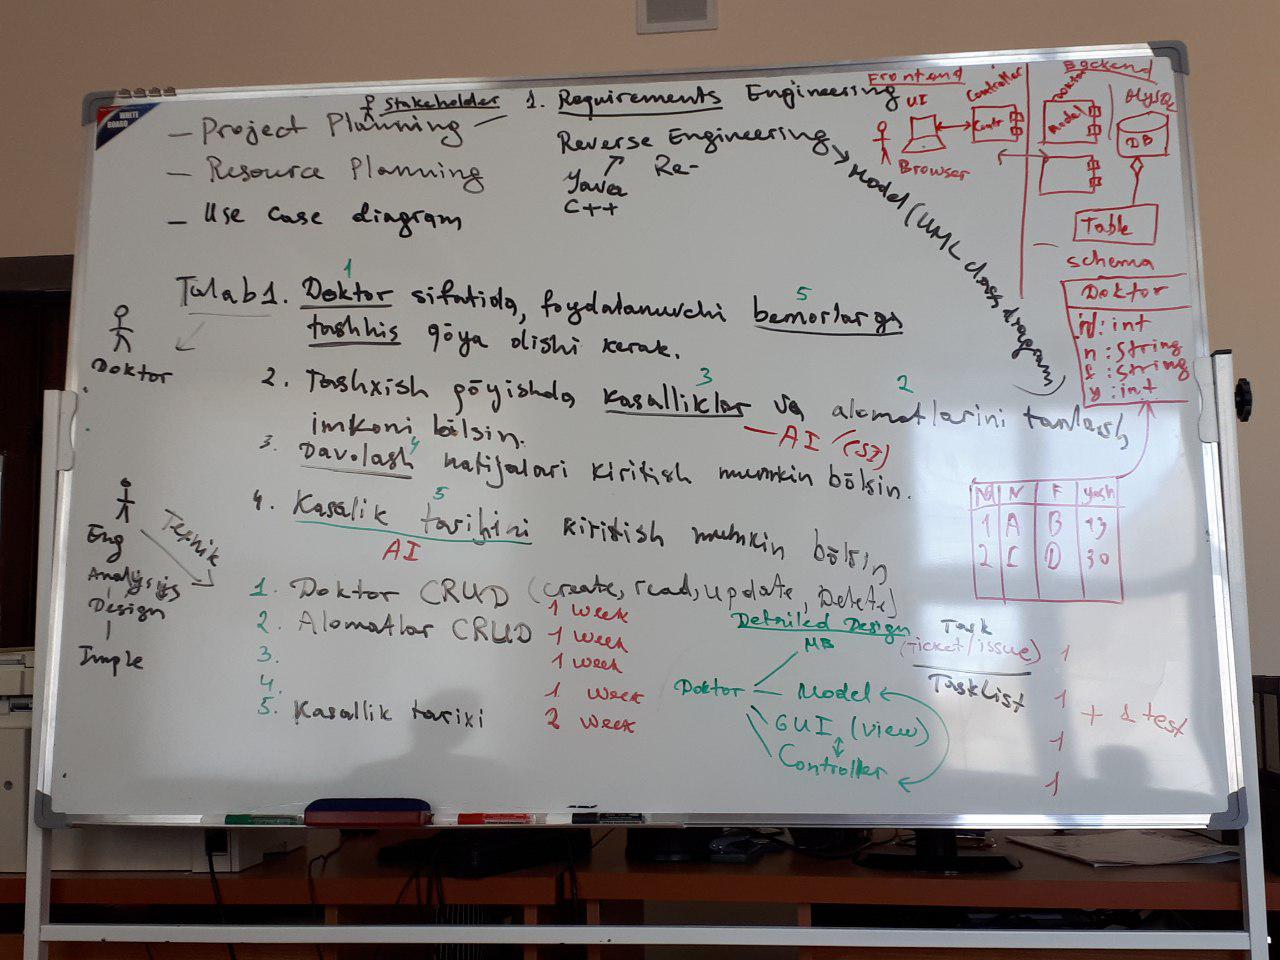 WHITE BOARD
Stakeholder
— Project Planning —
— Resource Planning
— Use case diagram
1. Requirements Engineering
Reverse Engineering
Re-
Java
C++
Model (UML class diagram)
Frontend
UI
Controller
Contr
Browser
Backend
Doktor
Model
MySQL
DB
Table
schema
Doktor
id: int
n: String
f: String
y: int
1
5
Talab 1. Doktor sifatida, foydalanuvchi bemorlarga
tashhis qōya olishi kerak.
Doktor
3
2
2. Tashxish qōyishda kasalliklar va alomatlarini tanlash
imkoni bōlsin.
— AI (SI)
4
3. Davolash natijalari kiritish mumkin bōlsin.
5
4. Kasalik tarihini kiritish mumkin bōlsin
AI
No N F yosh
1 A B 43
2 C D 30
Eng
Texnik
Analysys
Design
Imple
1. Doktor CRUD (create, read, update, Delete)
1 week
2. Alomatlar CRUD 1 week
3. 1 week
4. 1 week
5. Kasallik tarixi 2 week
Detailed Design
MB
Doktor — Model
GUI (view)
Controller
Task
(Ticket/issue)
TaskList
1
1
1
1
+ & test